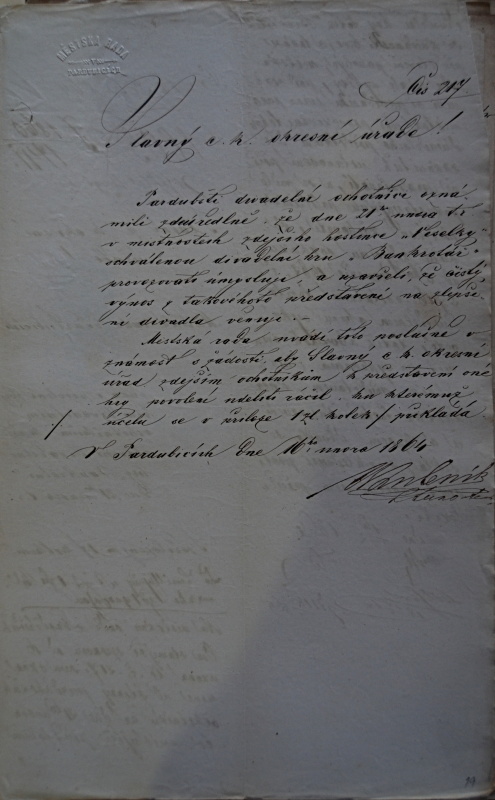 MĚSTSKÁ RADA
V
PARDUBICÍCH
Čís 217
Slavný c. k. okresní úřade!
Pardubští divadelní ochotníce ozná-
mili zdeúředlně, že dne 21ho února t.r.
v místnostech zdejšího hostince „Veselky"
ochválenou divadelní hru „Bankrotář"
provozovati úmysluje, a uzavřelo, že čistý
výnos z takovéhoto představení na zlepše-
ní divadla venuje.-
Městska rada uvádí toto poslušně v
známost s žádostí, aby Slavný c. k. okresní
úřad zdejším ochotníkům k představení oné
hry povolení uděliti račil, ku kterémuž
účelu se v příloze 1 zl kolek ⁒ překládá
⁒
V Pardubicích dne 16ho února 1864